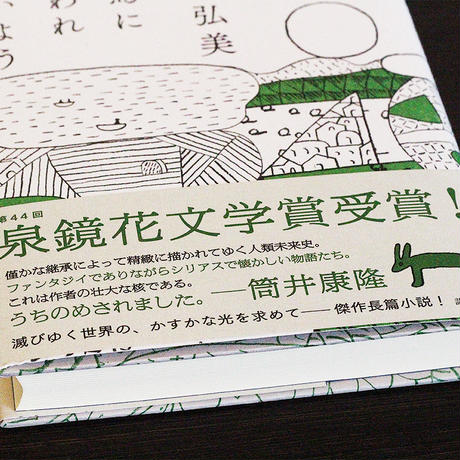 弘美
に
われ
よう
第44回
泉鏡花文学賞受賞!
僅かな継承によって精緻に描かれてゆく人類未来史。
ファンタジイでありながらシリアスで懐かしい物語たち。
これは作者の壮大な核である。
うちのめされました。——筒井康隆
滅びゆく世界の、かすかな光を求めて——傑作長篇小説!